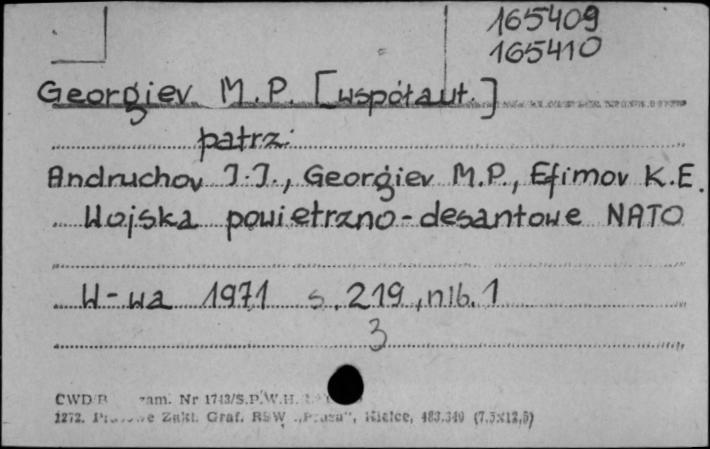 165409
165410
Georgiev M.P. [współaut.]
patrz:
Andruchov I.I., Georgiev M.P., Efimov K.E.
Wojska powietrzno-desantowe NATO
W-wa 1971 s. 219, nlb. 1
3
CWD zam. Nr 1743/S.P.W.H.
1272. Zakł. Graf. RSW „Prasa", Kielce, 483.340 (7,5x12,5)